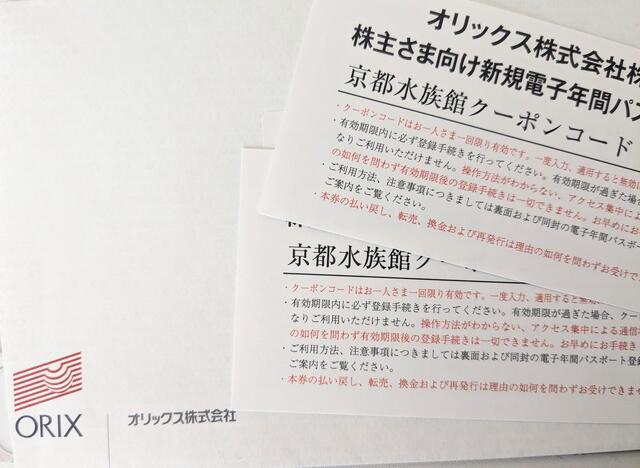 オリックス株式会社株
株主さま向け新規電子年間パス
京都水族館クーポンコード
・クーポンコードはお一人さま一回限り有効です。一度入力、適用すると無効
・有効期限内に必ず登録手続きを行ってください。有効期限が過ぎた場合
なりご利用いただけません。操作方法がわからない、アクセス集中によ
の如何を問わず有効期限後の登録手続きは一切できません。お早めにお
・ご利用方法、注意事項につきましては裏面および同封の電子年間パスポー
ご案内をご覧ください。
・本券の払い戻し、転売、換金および再発行は理由の如何を問わずお受けで
京都水族館ク
・クーポンコードはお一人さま一回限り有効です。一度入力、適用すると無効
・有効期限内に必ず登録手続きを行ってください。有効期限が過ぎた場合、クー
なりご利用いただけません。操作方法がわからない、アクセス集中による通信
の如何を問わず有効期限後の登録手続きは一切できません。お早めにお手続き
・ご利用方法、注意事項につきましては裏面および同封の電子年間パスポート登録
ご案内をご覧ください。
・本券の払い戻し、転売、換金および再発行は理由の如何を問わずお受けできませ
ORIX
オリックス株式会社